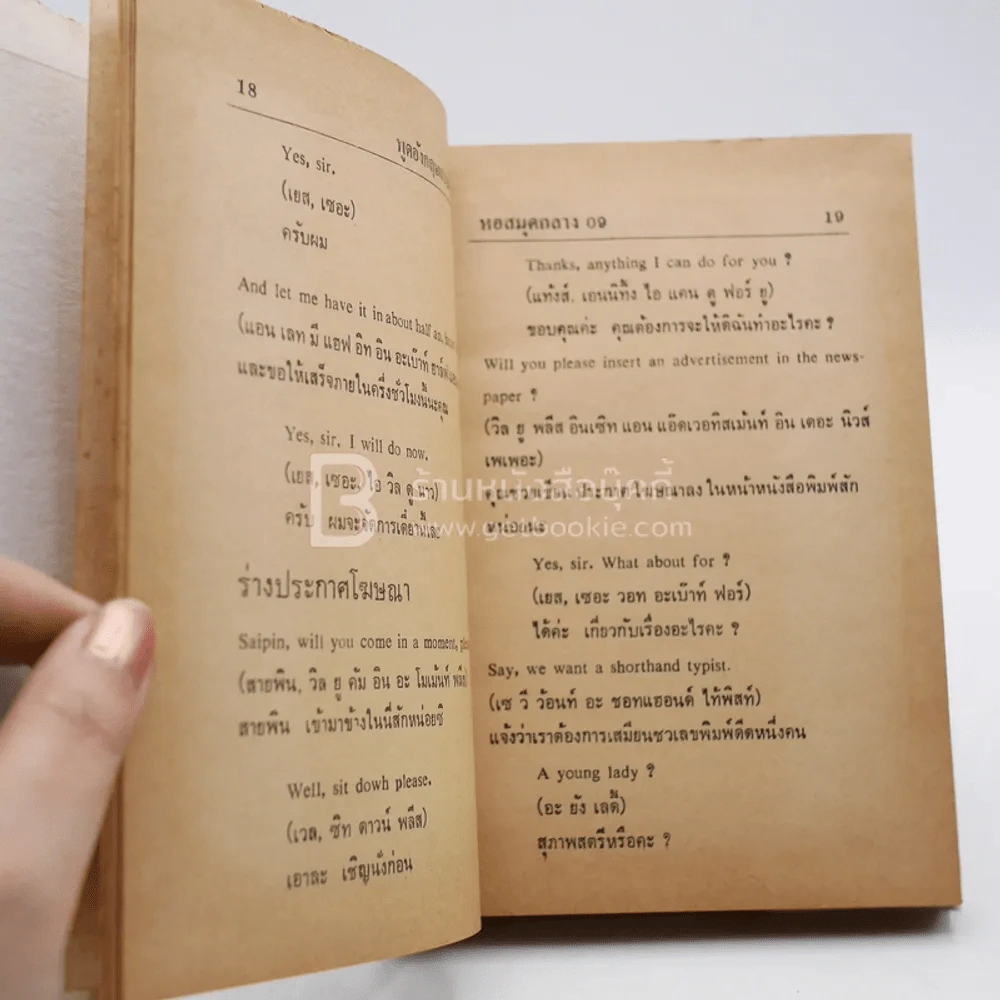 18
พูดอังกฤษ
Yes, sir.
(เยส, เซอะ)
ครับผม
And let me have it in about half an
(แอน เลท มี แฮฟ อิท อิน อะเบ๊าท์ ฮาล์ฟ
และขอให้เสร็จภายในครึ่งชั่วโมงนี้นะคุณ
Yes, sir. I will do now.
(เยส, เซอะ, ไอ วิล ดู นาว)
ครับ ผมจะจัดการเดี๋ยวนี้แหละ
ร่างประกาศโฆษณา
Saipin, will you come in a moment,
(สายพิน, วิล ยู คัม อิน อะ โมเม้นท์ พลีส)
สายพิน เข้ามาข้างในนี่สักหน่อยซิ
Well, sit dowh please.
(เวล, ซิท ดาวน์ พลีส)
เอาละ เชิญนั่งก่อน
หอสมุดกลาง 09 19
Thanks, anything I can do for you ?
(แท้งส์, เอนนิทิ้ง ไอ แคน ดู ฟอร์ ยู)
ขอบคุณค่ะ คุณต้องการจะให้ดิฉันทำอะไรคะ ?
Will you please insert an advertisement in the news-
paper ?
(วิล ยู พลีส อินเซิท แอน แอ๊ดเวอทิสเม้นท์ อิน เดอะ นิวส์
เพเพอะ)
คุณช่วยเขียนประกาศโฆษณาลง ในหน้าหนังสือพิมพ์สัก
หน่อยนะ
Yes, sir. What about for ?
(เยส, เซอะ วอท อะเบ๊าท์ ฟอร์)
ได้ค่ะ เกี่ยวกับเรื่องอะไรคะ ?
Say, we want a shorthand typist.
(เซ วี ว้อนท์ อะ ชอทแฮอนด์ ไท้พิสท์)
แจ้งว่าเราต้องการเสมียนชวเลขพิมพ์ดีดหนึ่งคน
A young lady ?
(อะ ยัง เลดี้)
สุภาพสตรีหรือคะ ?
B ร้านหนังสือบุ๊คกี้
www.getbookie.com